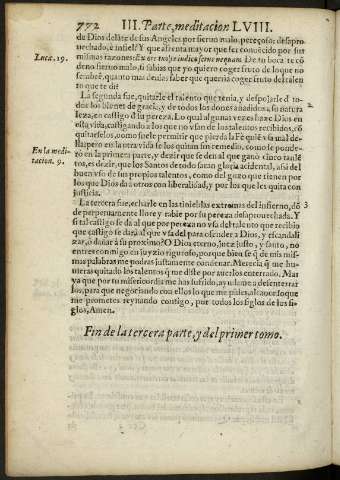 772 III. Parte, meditacion LVIII.
de Dios delãte de sus Angeles por sieruo malo, pereçoso, desapro-
uechado, è infiel? Y que afrenta mayor que ser conuecido por sus
Luc. 19. mismas razones: Ex ore tuo te iudico serue nequam. De tu boca te cõ
deno sieruo malo, si sabias que yo quiero coger fruto de loque no
sembrè, quanto mas deuias saber que querria coger fruto del talen
to que te di?
La segunda fue, quitarle el talento que tenia, y despojarle d̃ to- 2.
dos los bienes de gracia, y de todos los dones añadidos a su natura
leza, en castigo d̃ su pereza. Lo qual algunas vezes haze Dios en
esta vida, castigando a los que no vsan de los talentos recibidos, cõ
quitarselos, como suele permitir que pierda la Fè quiẽ vsa mal de-
En la medi- lla: pero en la otra vida se los quitan sin remedio, como se ponde-
tacion. 9. rò en la primera parte, y dezir que se den al que ganò cinco talẽ-
tos, es dezir, que los Santos de todo sacan gloria accidental, assi del
buen vso de sus propios talentos, como del gozo que tienen por
los que Dios da a otros con liberalidad, y por los que les quita con
justicia.
La tercera fue, echarle en las tinieblas extremas del infierno, dõ 3
de perpetuamente llore y rabie por su pereza desaprouechada. Y
si tal castigo se da al que por pereza no vsa del talento que recibio
que castigo se darà al que vsa del para ofender a Dios, y escandali
zar, o dañar à su proximo? O Dios eterno, juez justo, y santo, no
entres conmigo en juyzio riguroso, porque bien se q̃ de mis mis-
mas palabras me podras justamente condenar. Merecia q̃ me hu-
uieras quitado los talentos q̃ me diste por auerlos enterrado. Mas
ya que por tu misericordia me has sufrido, ayudame a desenterrar
los, para que negociando con ellos lo que me pides, alcance lo que
me prometes reynando contigo, por todos los siglos de los si-
glos, Amen.
Fin de la tercera parte, y del primer tomo.